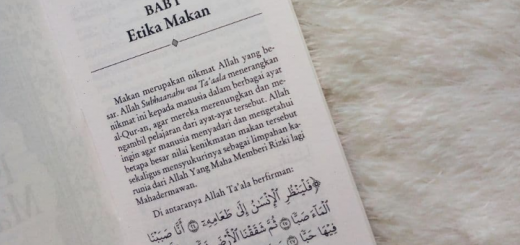 BAB I
Etika Makan
Makan merupakan nikmat Allah yang be-
sar. Allah Subhaanahu wa Ta'aala menerangkan
nikmat ini kepada manusia dalam berbagai ayat
al-Qur-an, agar mereka merenungkan dan me-
ngambil pelajaran dari ayat-ayat tersebut. Allah
ingin agar manusia menyadari dan mengetahui
betapa besar nilai kenikmatan makan tersebut
sekaligus mensyukurinya sebagai limpahan ka-
runia dari Allah Yang Maha Memberi Rizki lagi
Mahadermawan.
Di antaranya Allah Ta'ala berfirman:
﴿ فَلْيَنْظُرِ الْإِنْسَٰنُ إِلَىٰ طَعَامِهِۦٓ ﴿٢٤﴾ أَنَّا صَبَبْنَا
الْمَآءَ صَبًّا ﴿٢٥﴾ ثُمَّ شَقَقْنَا الْأَرْضَ
فِيهَا حَبًّا